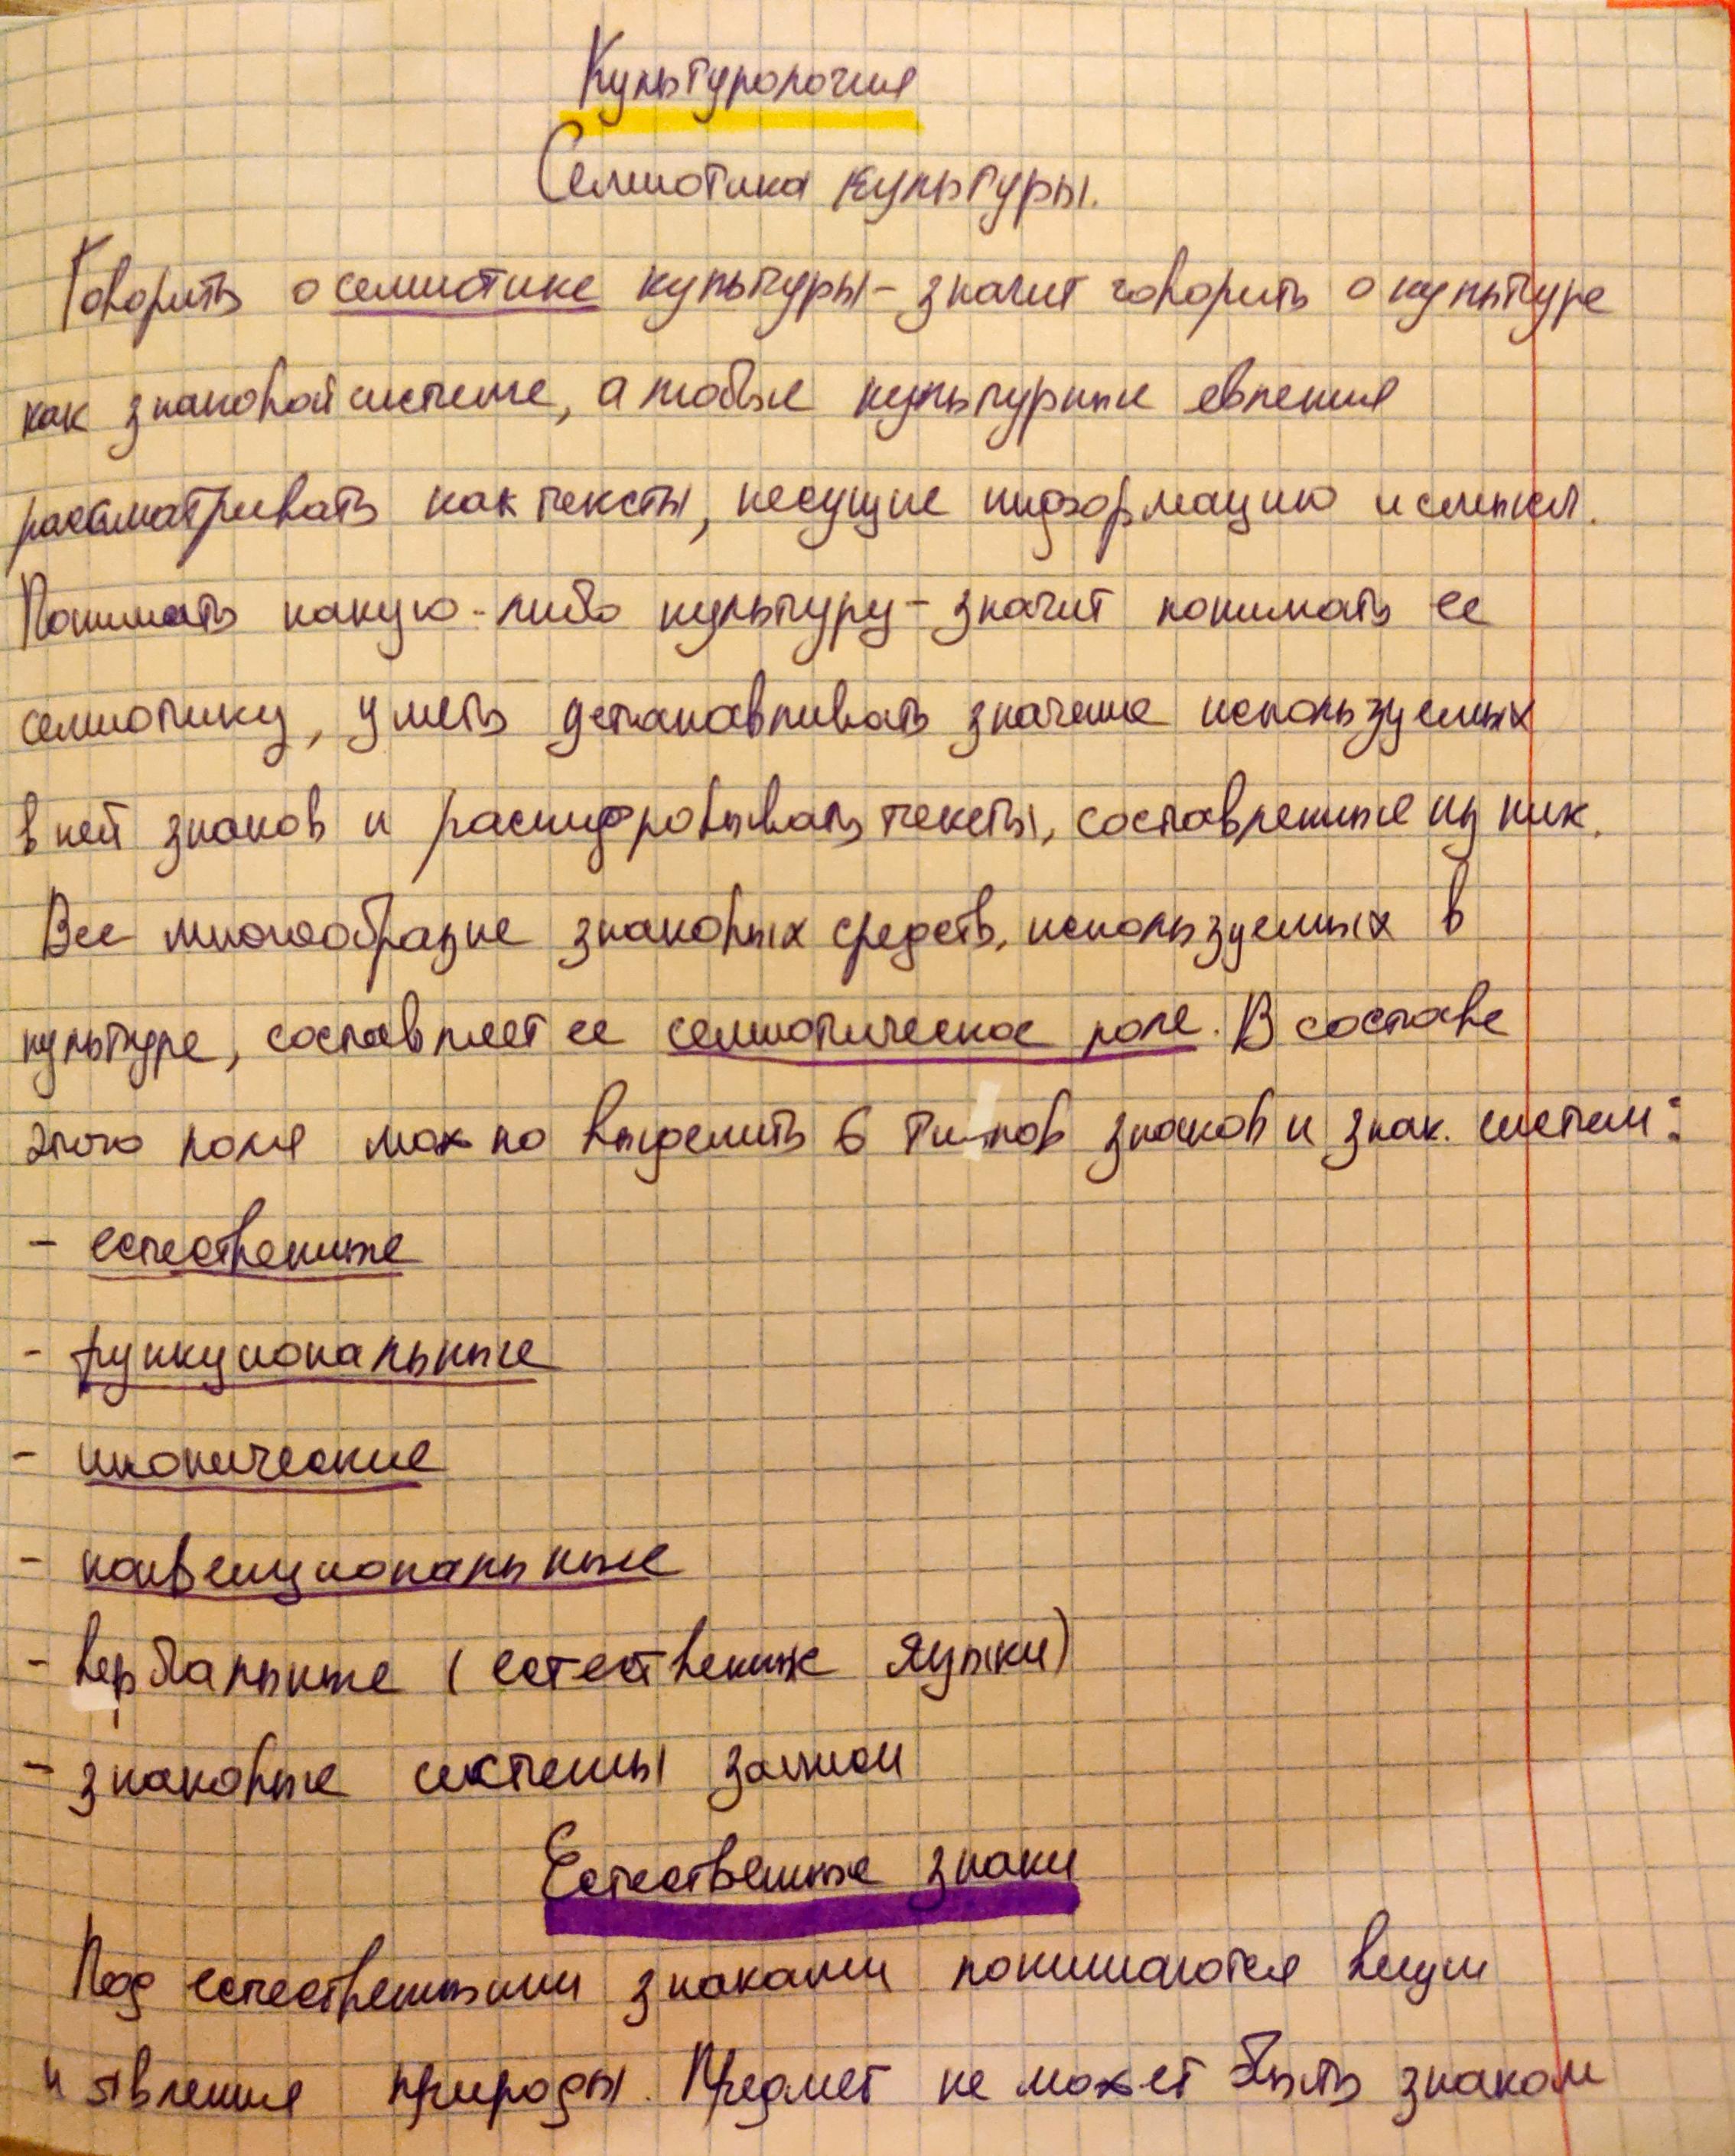 Культурология
Семиотика культуры.
Говорить о семиотике культуры – значит говорить о культуре
как знаковой системе, а любые культурные евления
рассматривать как тексты, несущие информацию и смысл.
Понимать какую-либо культуру – значит понимать ее
семиотику, уметь устанавливать значение используемых
в ней знаков и расшифровывать тексты, составленные из них.
Все многообразие знаковых средств, используемых в
культуре, составляет ее семиотическое поле. В составе
этого поля можно выделить 6 типов знаков и знак. систем:
- естественные
- функциональные
- иконические
- конвенциональные
- вербальные (естественные языки)
- знаковые системы записи
Естественные знаки
Под естественными знаками понимаются вещи
и явления природы. Предмет не может быть знаком